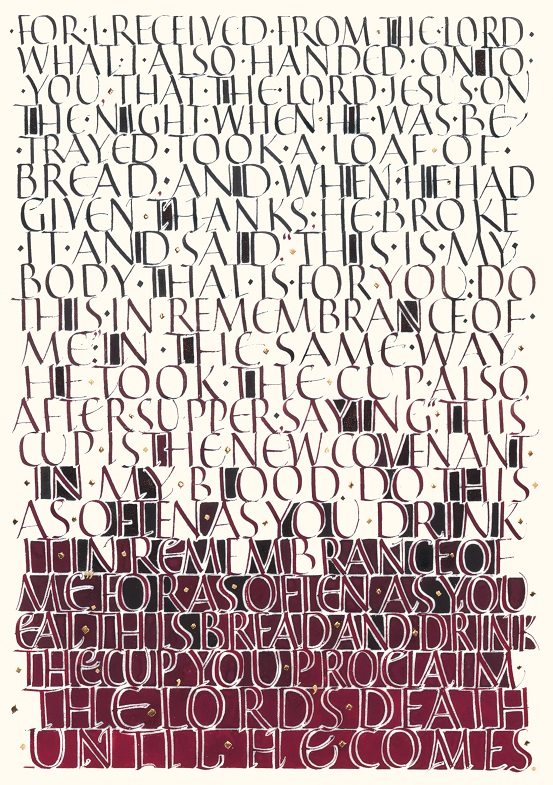 ·FOR·I·RECEIVED·FROM·THE·LORD·
WHAT·I·ALSO·HANDED·ON·TO
·YOU·THAT·THE·LORD·JESUS·ON
THE·NIGHT·WHEN·HE·WAS·BE
·TRAYED·TOOK·A·LOAF·OF·
BREAD·AND·WHEN·HE·HAD
GIVEN·THANKS·HE·BROKE
·IT·AND·SAID·"THIS·IS·MY·
BODY·THAT·IS·FOR·YOU·DO
THIS·IN·REMEMBRANCE·OF·
·ME"·IN·THE·SAME·WAY·
HE·TOOK·THE·CUP·ALSO,
AFTER·SUPPER·SAYING·"THIS·
CUP·IS·THE·NEW·COVENANT
·IN·MY·BLOOD·DO·THIS·
·AS·OFTEN·AS·YOU·DRINK
IT·IN·REMEMBRANCE·OF
ME"·FOR·AS·OFTEN·AS·YOU
EAT·THIS·BREAD·AND·DRINK
THE·CUP,·YOU·PROCLAIM·
·THE·LORD'S·DEATH
UNTIL·HE·COMES·